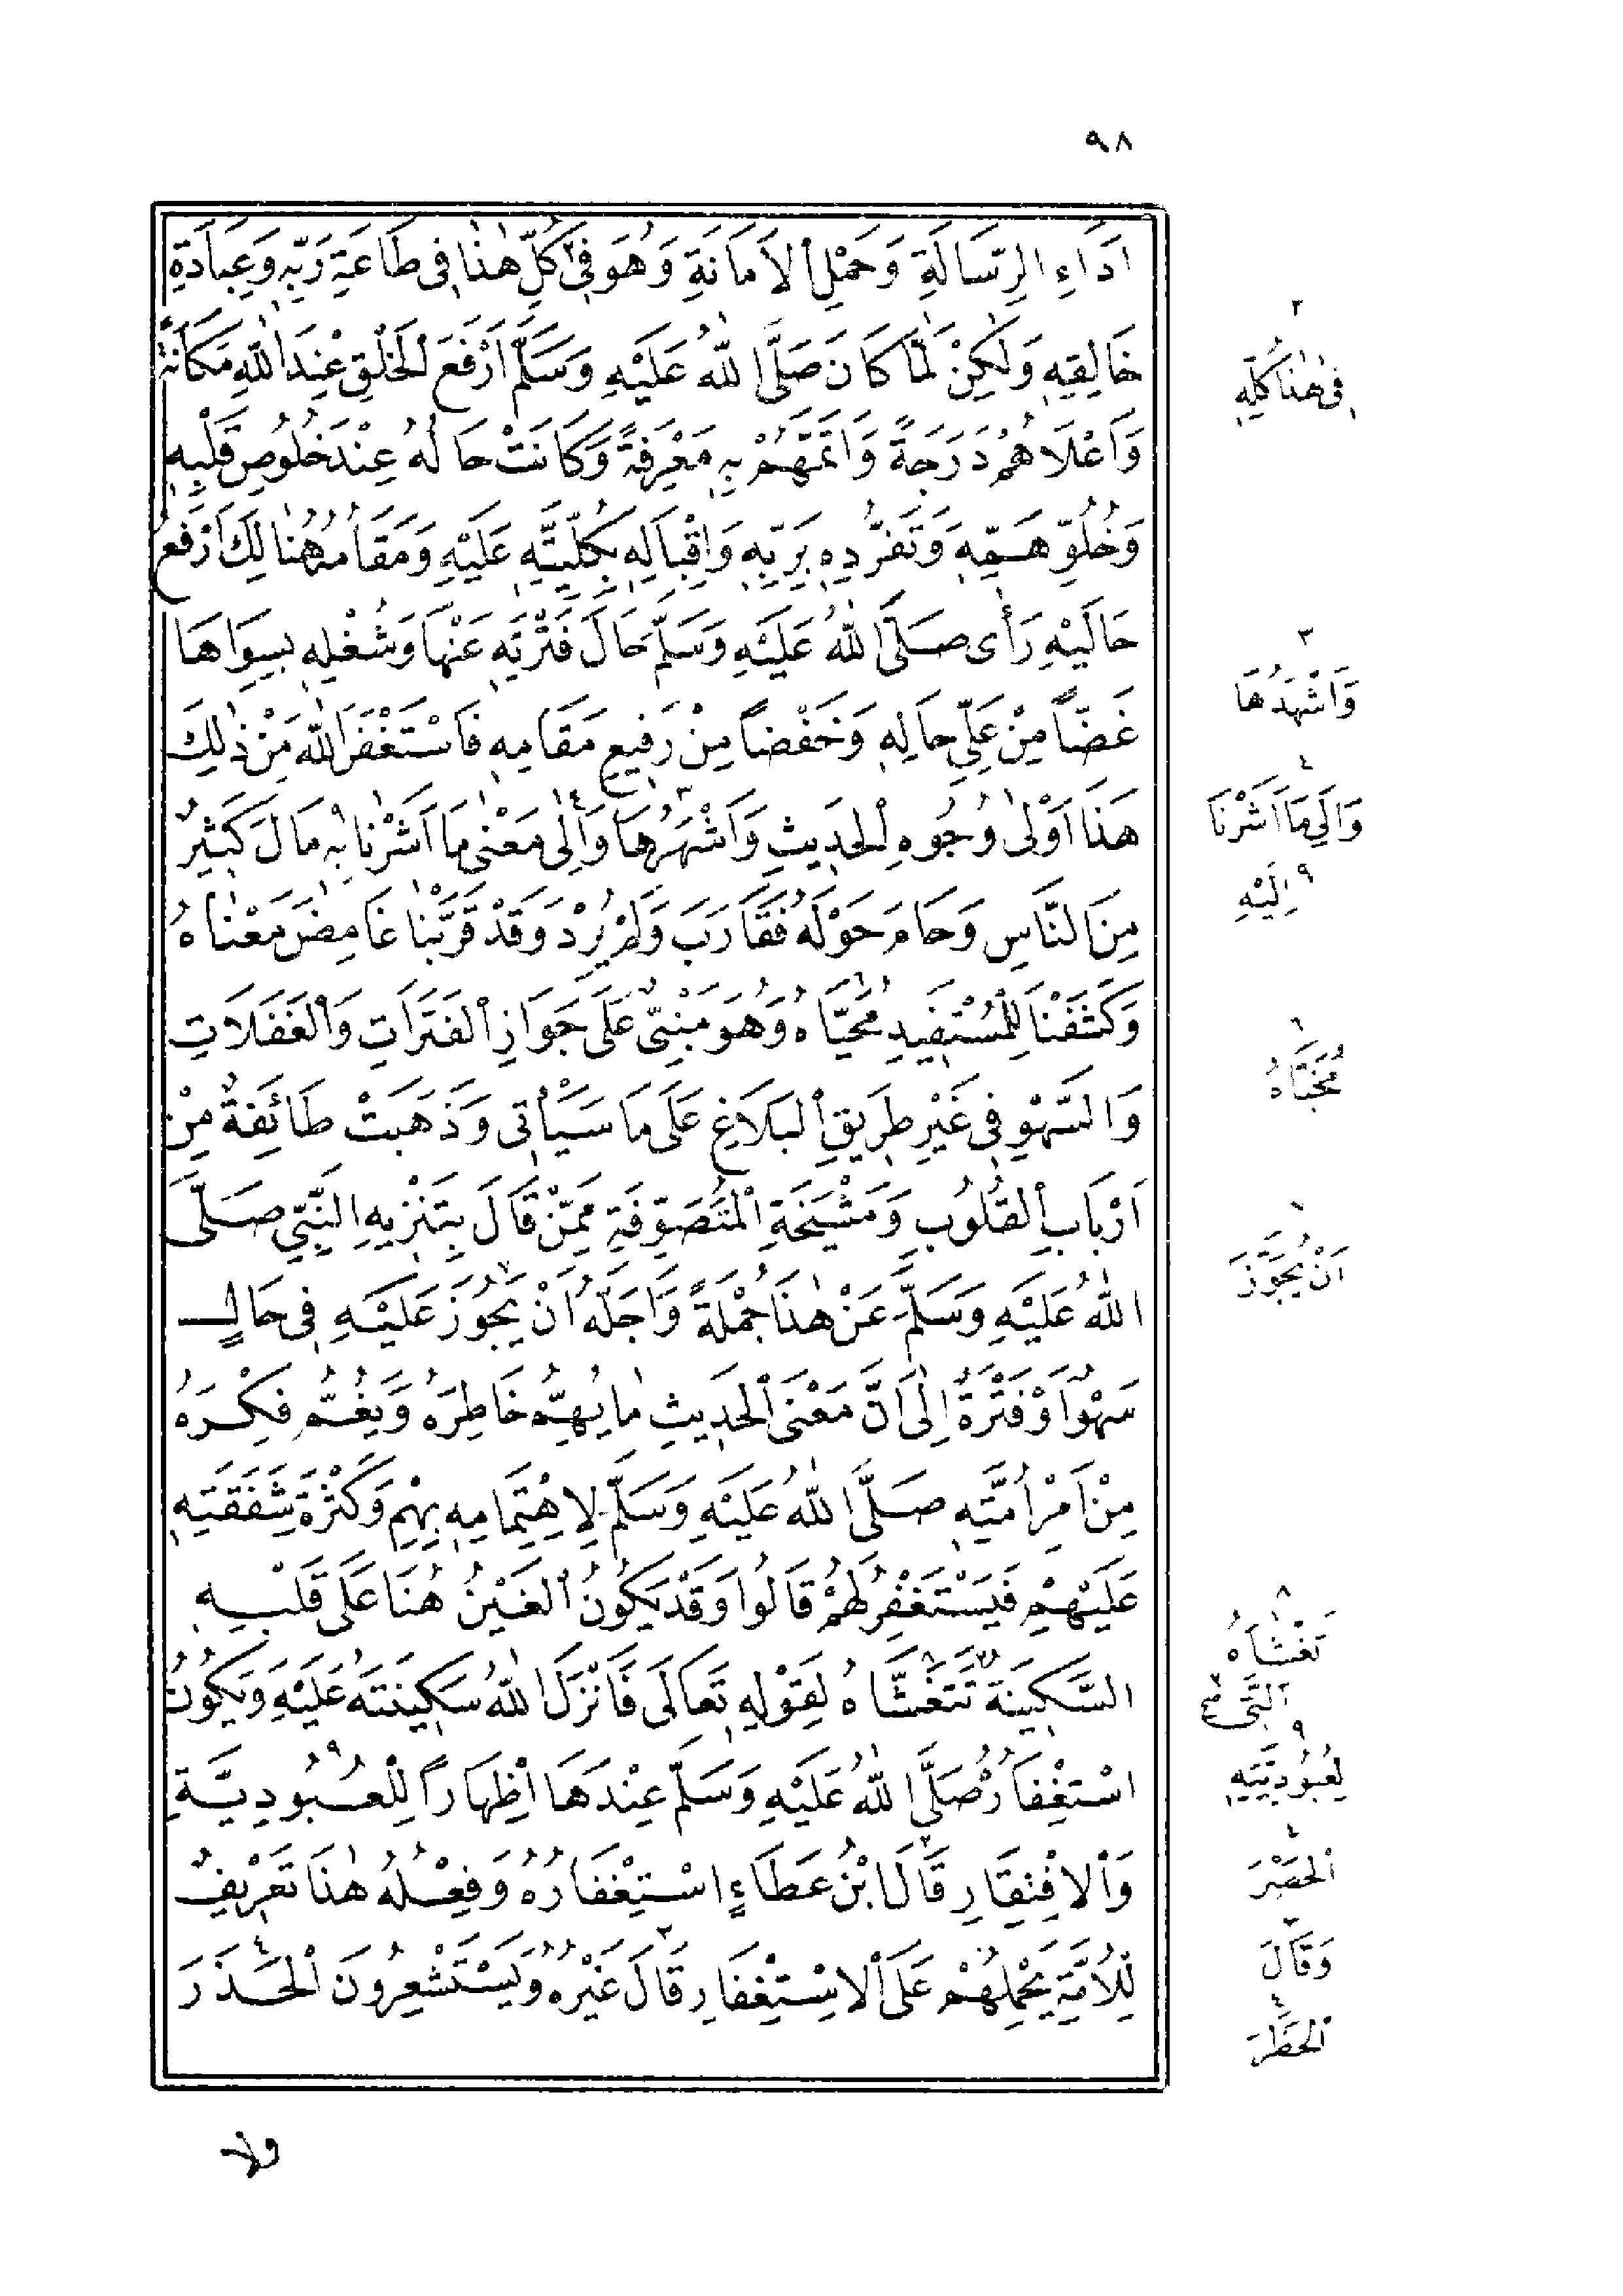 ٩٨
اَدَاءِ الرِّسَالَةِ وَحَمْلِ الْاَمَانَةِ وَهُوَ فِى كُلِّ هٰذَا فِى طَاعَةِ رَبِّهِ وَعِبَادَةِ
خَالِقِهِ وَلٰكِنْ لَمَّا كَانَ صَلَّى اللّٰهُ عَلَيْهِ وَسَلَّمَ اَرْفَعَ الْخَلْقِ عِنْدَ اللّٰهِ مَكَانَةً
وَاَعْلَاهُمْ دَرَجَةً وَاَتَمَّهُمْ بِهِ مَعْرِفَةً وَكَانَتْ حَالُهُ عِنْدَ خُلُوصِ قَلْبِهِ
وَخُلُوِّ هَمِّهِ وَتَفَرُّدِهِ بِرَبِّهِ وَاِقْبَالِهِ بِكُلِّيَّتِهِ عَلَيْهِ وَمَقَامُهُ هُنَالِكَ اَرْفَعَ
حَالَيْهِ رَأٰى صَلَّى اللّٰهُ عَلَيْهِ وَسَلَّمَ حَالَ فَتْرَتِهِ عَنْهَا وَشُغْلِهِ بِسِوَاهَا
غَضًّا مِنْ عَلِىِّ حَالِهِ وَخَفْضًا مِنْ رَفِيعِ مَقَامِهِ فَاسْتَغْفَرَ اللّٰهَ مِنْ ذٰلِكَ
هَذَا اَوْلٰى وُجُوهِ الْحَدِيثِ وَاَشْهَرُهَا وَاِلٰى مَعْنٰى مَا اَشَرْنَا بِهِ مَالَ كَثِيرٌ
مِنَ النَّاسِ وَحَامَ حَوْلَهُ فَقَارَبَ وَلَمْ يَرِدْ وَقَدْ قَرَّبْنَا غَامِضَ مَعْنَاهُ
وَكَشَفْنَا لِلْمُسْتَفِيدِ مُحَيَّاهُ وَهُوَ مَبْنِىٌّ عَلَى جَوَازِ الْفَتَرَاتِ وَالْغَفَلَاتِ
وَالسَّهْوِ فِى غَيْرِ طَرِيقِ الْبَلَاغِ عَلَى مَا سَيَأْتِى وَذَهَبَتْ طَائِفَةٌ مِنْ
اَرْبَابِ الْقُلُوبِ وَمَشْيَخَةِ الْمُتَصَوِّفَةِ مِمَّنْ قَالَ بِتَنْزِيهِ النَّبِىِّ صَلَّى
اللّٰهُ عَلَيْهِ وَسَلَّمَ عَنْ هٰذَا جُمْلَةً وَاَجَلَّهُ اَنْ يَجُوزَ عَلَيْهِ فِى حَالٍ
سَهْوٌ اَوْ فَتْرَةٌ اِلٰى اَنَّ مَعْنَى الْحَدِيثِ مَا يُهِمُّ خَاطِرَهُ وَيَغُمُّ فِكْرَهُ
مِنْ اَمْرِ اُمَّتِهِ صَلَّى اللّٰهُ عَلَيْهِ وَسَلَّمَ لِاهْتِمَامِهِ بِهِمْ وَكَثْرَةِ شَفَقَتِهِ
عَلَيْهِمْ فَيَسْتَغْفِرُ لَهُمْ قَالُوا وَقَدْ يَكُونُ الْغَيْنُ هُنَا عَلَى قَلْبِهِ
السَّكِينَةَ تَتَغَشَّاهُ لِقَوْلِهِ تَعَالَى فَاَنْزَلَ اللّٰهُ سَكِينَتَهُ عَلَيْهِ وَيَكُونُ
اسْتِغْفَارُهُ صَلَّى اللّٰهُ عَلَيْهِ وَسَلَّمَ عِنْدَهَا اِظْهَارًا لِلْعُبُودِيَّةِ
وَالِافْتِقَارِ قَالَ ابْنُ عَطَاءٍ اسْتِغْفَارُهُ وَفِعْلُهُ هٰذَا تَعْرِيفٌ
لِلْاُمَّةِ يَحْمِلُهُمْ عَلَى الِاسْتِغْفَارِ قَالَ غَيْرُهُ وَيَسْتَشْعِرُونَ الْحَذَرَ
٢
فِى هٰذَا كُلِّهِ
٣
وَاَشْهَدُهَا
٤
وَاِلَى مَا اَشَرْنَا
اِلَيْهِ ٩
٦
مُخَبَّاهُ
٦
اَنْ يُجَوَّزَ
٨
تَغْشَاهُ
اَلَّتِى
٩
لِعُبُودِيَّتِهِ
٤
الْحَصْرَ
٢
وَقَالَ
٤
الْحَظْرَ
ولا